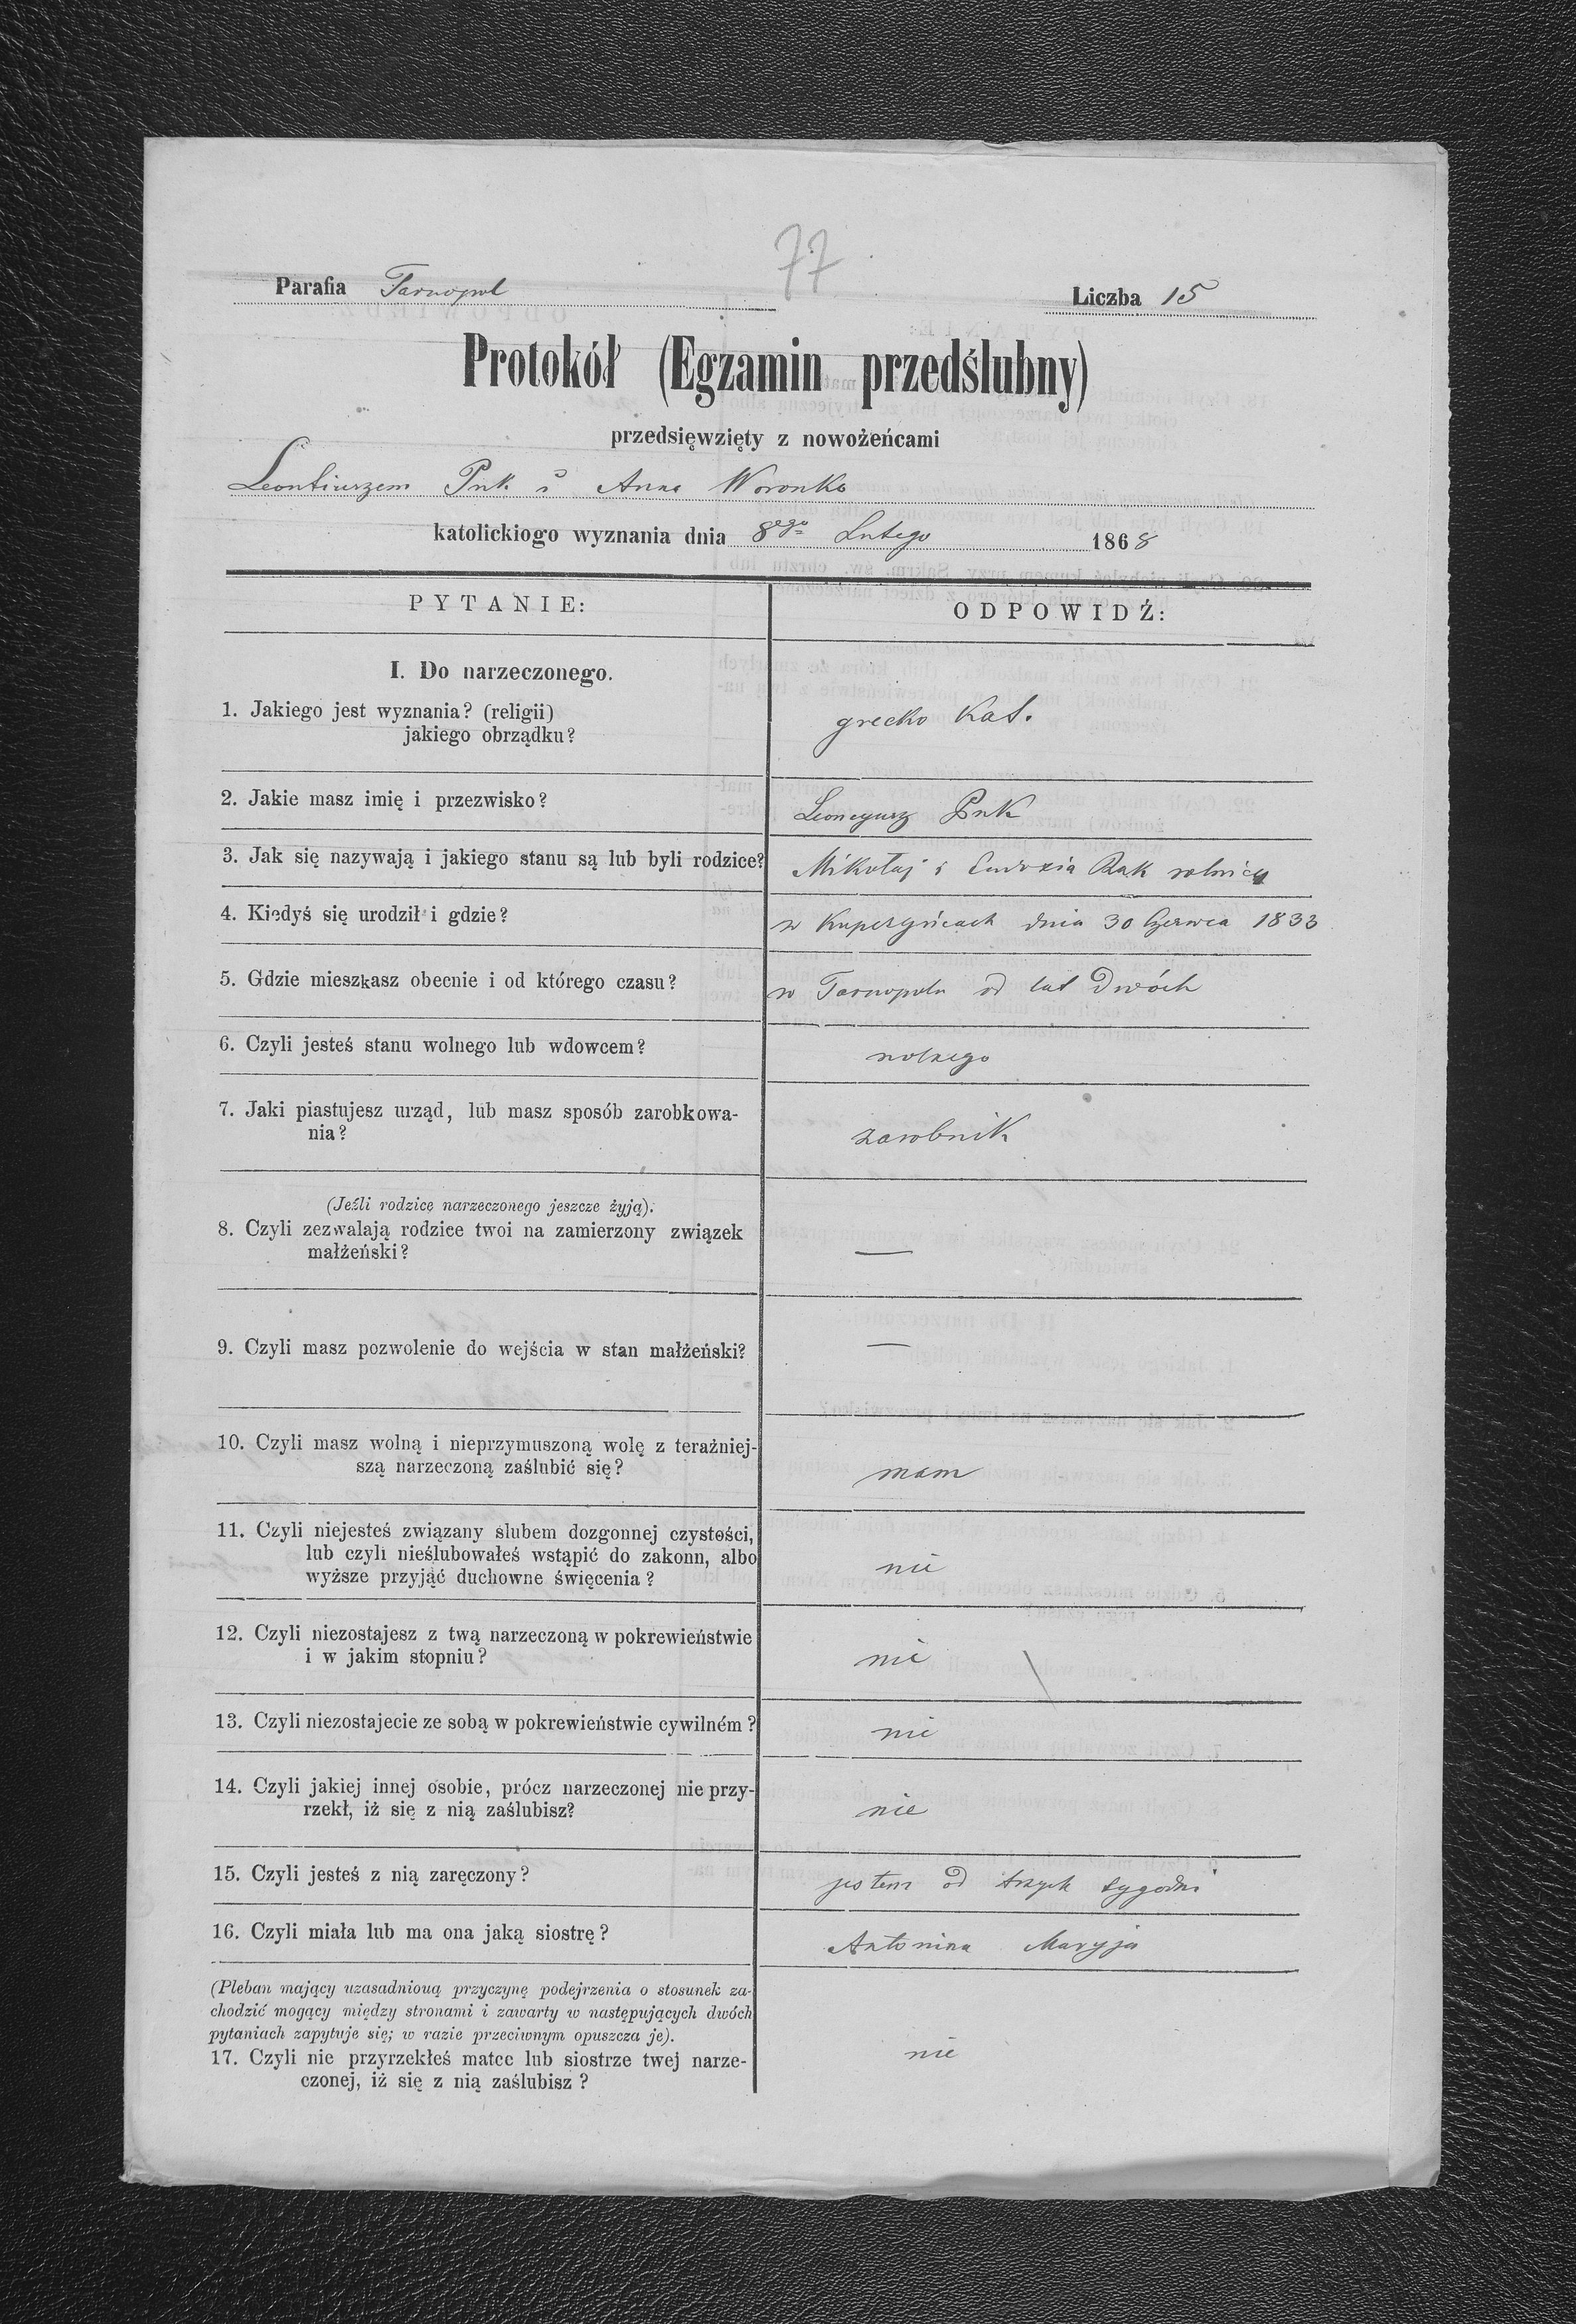 77
Parafia Tarnopol
Liczba 15
Protokół (Egzamin przedślubny)
przedsięwzięty z nowożeńcami
Leontiuszem Puk i Anna Woronko
katolickiogo wyznania dnia 8ego Lutego 1868
PYTANIE:
ODPOWIDŹ:
I. Do narzeczonego.
1. Jakiego jest wyznania? (religii)
jakiego obrządku?
grecko Kat.
2. Jakie masz imię i przezwisko?
Puk
3. Jak się nazywają i jakiego stanu są lub byli rodzice?
Mikołaj i rolnicy
4. Kiedyś się urodził i gdzie?
w Kupczyńcach dnia 30 Czerwca 1833
5. Gdzie mieszkasz obecnie i od którego czasu?
w Tarnopolu od lat Dwóch
6. Czyli jesteś stanu wolnego lub wdowcem?
wolnego
7. Jaki piastujesz urząd, lub masz sposób zarobkowa-
nia?
zarobnik
(Jeźli rodzice narzeczonego jeszcze żyją).
8. Czyli zezwalają rodzice twoi na zamierzony związek
małżeński?
—
9. Czyli masz pozwolenie do wejścia w stan małżeński?
—
10. Czyli masz wolną i nieprzymuszoną wolę z teraźniej-
szą narzeczoną zaślubić się?
mam
11. Czyli niejesteś związany ślubem dozgonnej czystości,
lub czyli nieślubowałeś wstąpić do zakonn, albo
wyższe przyjąć duchowne święcenia?
nie
12. Czyli niezostajesz z twą narzeczoną w pokrewieństwie
i w jakim stopniu?
nie
13. Czyli niezostajecie ze sobą w pokrewieństwie cywilném?
nie
14. Czyli jakiej innej osobie, prócz narzeczonej nie przy-
rzekł, iż się z nią zaślubisz?
nie
15. Czyli jesteś z nią zaręczony?
jestem od trzech tygodni
16. Czyli miała lub ma ona jaką siostrę?
Antonina Maryja
(Pleban mający uzasadnioną przyczynę podejrzenia o stosunek za-
chodzić mogący między stronami i zawarty w następujących dwóch
pytaniach zapytuje się; w razie przeciwnym opuszcza je).
17. Czyli nie przyrzekłeś matce lub siostrze twej narze-
czonej, iż się z nią zaślubisz?
nie